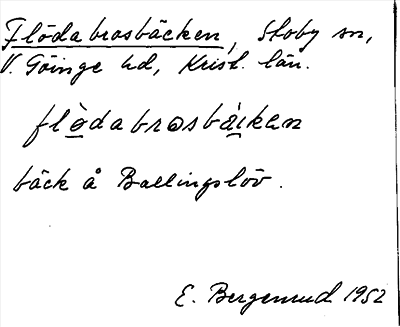 Flödabrosbäcken, Stoby sn,
V. Göinge hd, Krist. län.
flø̀dabrɔsbǽkən
bäck å Ballingslöv.
E. Bergenrud 1952